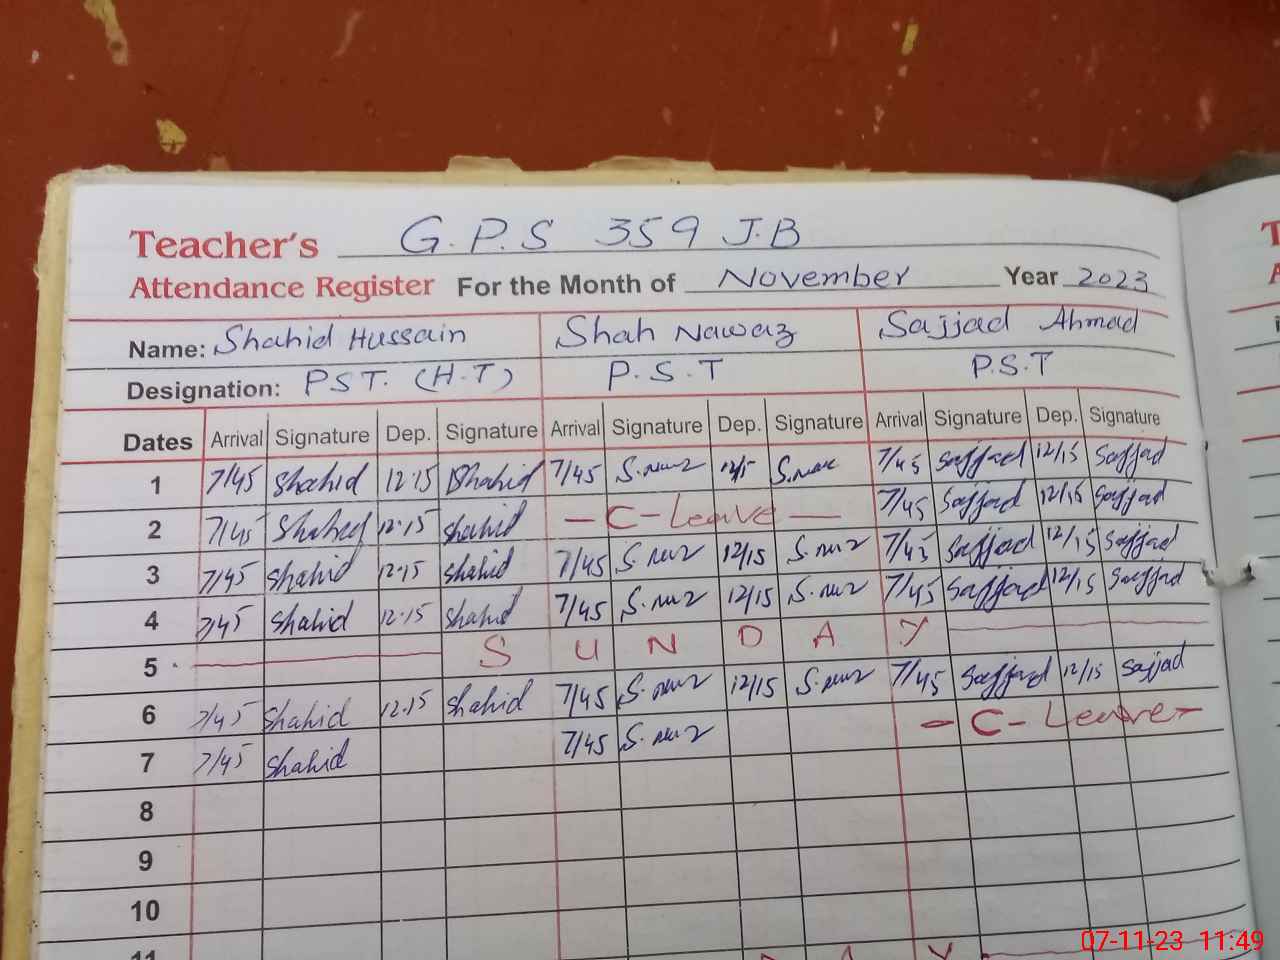 Teacher's G.P.S 359 J.B
Attendance Register For the Month of November Year 2023
Name: Shahid Hussain Shah Nawaz Sajjad Ahmad
Designation: PST. (H.T) P.S.T P.S.T
Dates Arrival Signature Dep. Signature Arrival Signature Dep. Signature Arrival Signature Dep. Signature
1 7/45 Shahid 12.15 Shahid 7/45 7/45 Sajjad 12/15 Sajjad
2 7/45 Shahid 12.15 Shahid - C-Leave - 7/45 Sajjad 12/15 Sajjad
3 7/45 Shahid 12.15 Shahid 7/45 12/15 7/45 Sajjad 12/15 Sajjad
4 7/45 Shahid 12.15 Shahid 7/45 12/15 7/45 Sajjad 12/15 Sajjad
5 S U N D A Y
6 7/45 Shahid 12.15 Shahid 7/45 12/15 7/45 Sajjad 12/15 Sajjad
7 7/45 Shahid 7/45 - C-Leave -
8
9
10
11 A Y
07-11-23 11:49